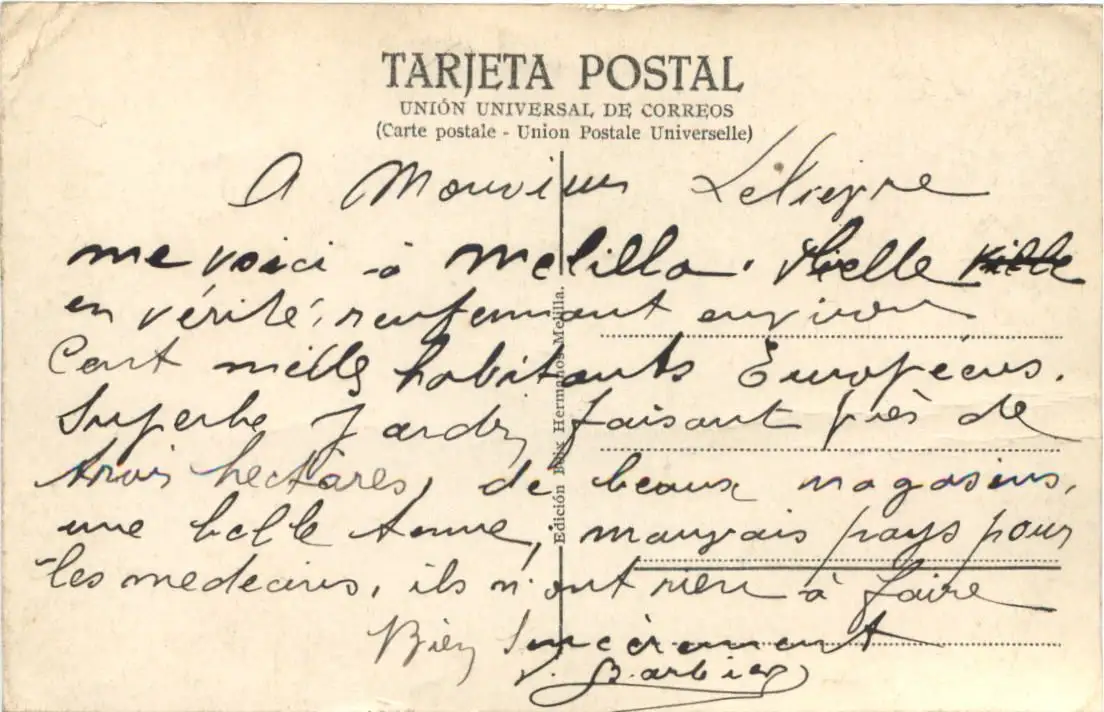 TARJETA POSTAL
UNIÓN UNIVERSAL DE CORREOS
(Carte postale - Union Postale Universelle)
A Monsieur Lelièvre
me voici à Melilla. Vielle Ville
en vérité, renfermant environ
Cent mille habitants Européens.
Superbe Jardin faisant près de
trois hectares, de beaux magasins,
une belle, mauvais pays pour
les medecins, ils n'ont rien à faire
Bien Sincèrement
V. Barbier
Edición Boix Hermanos Melilla.